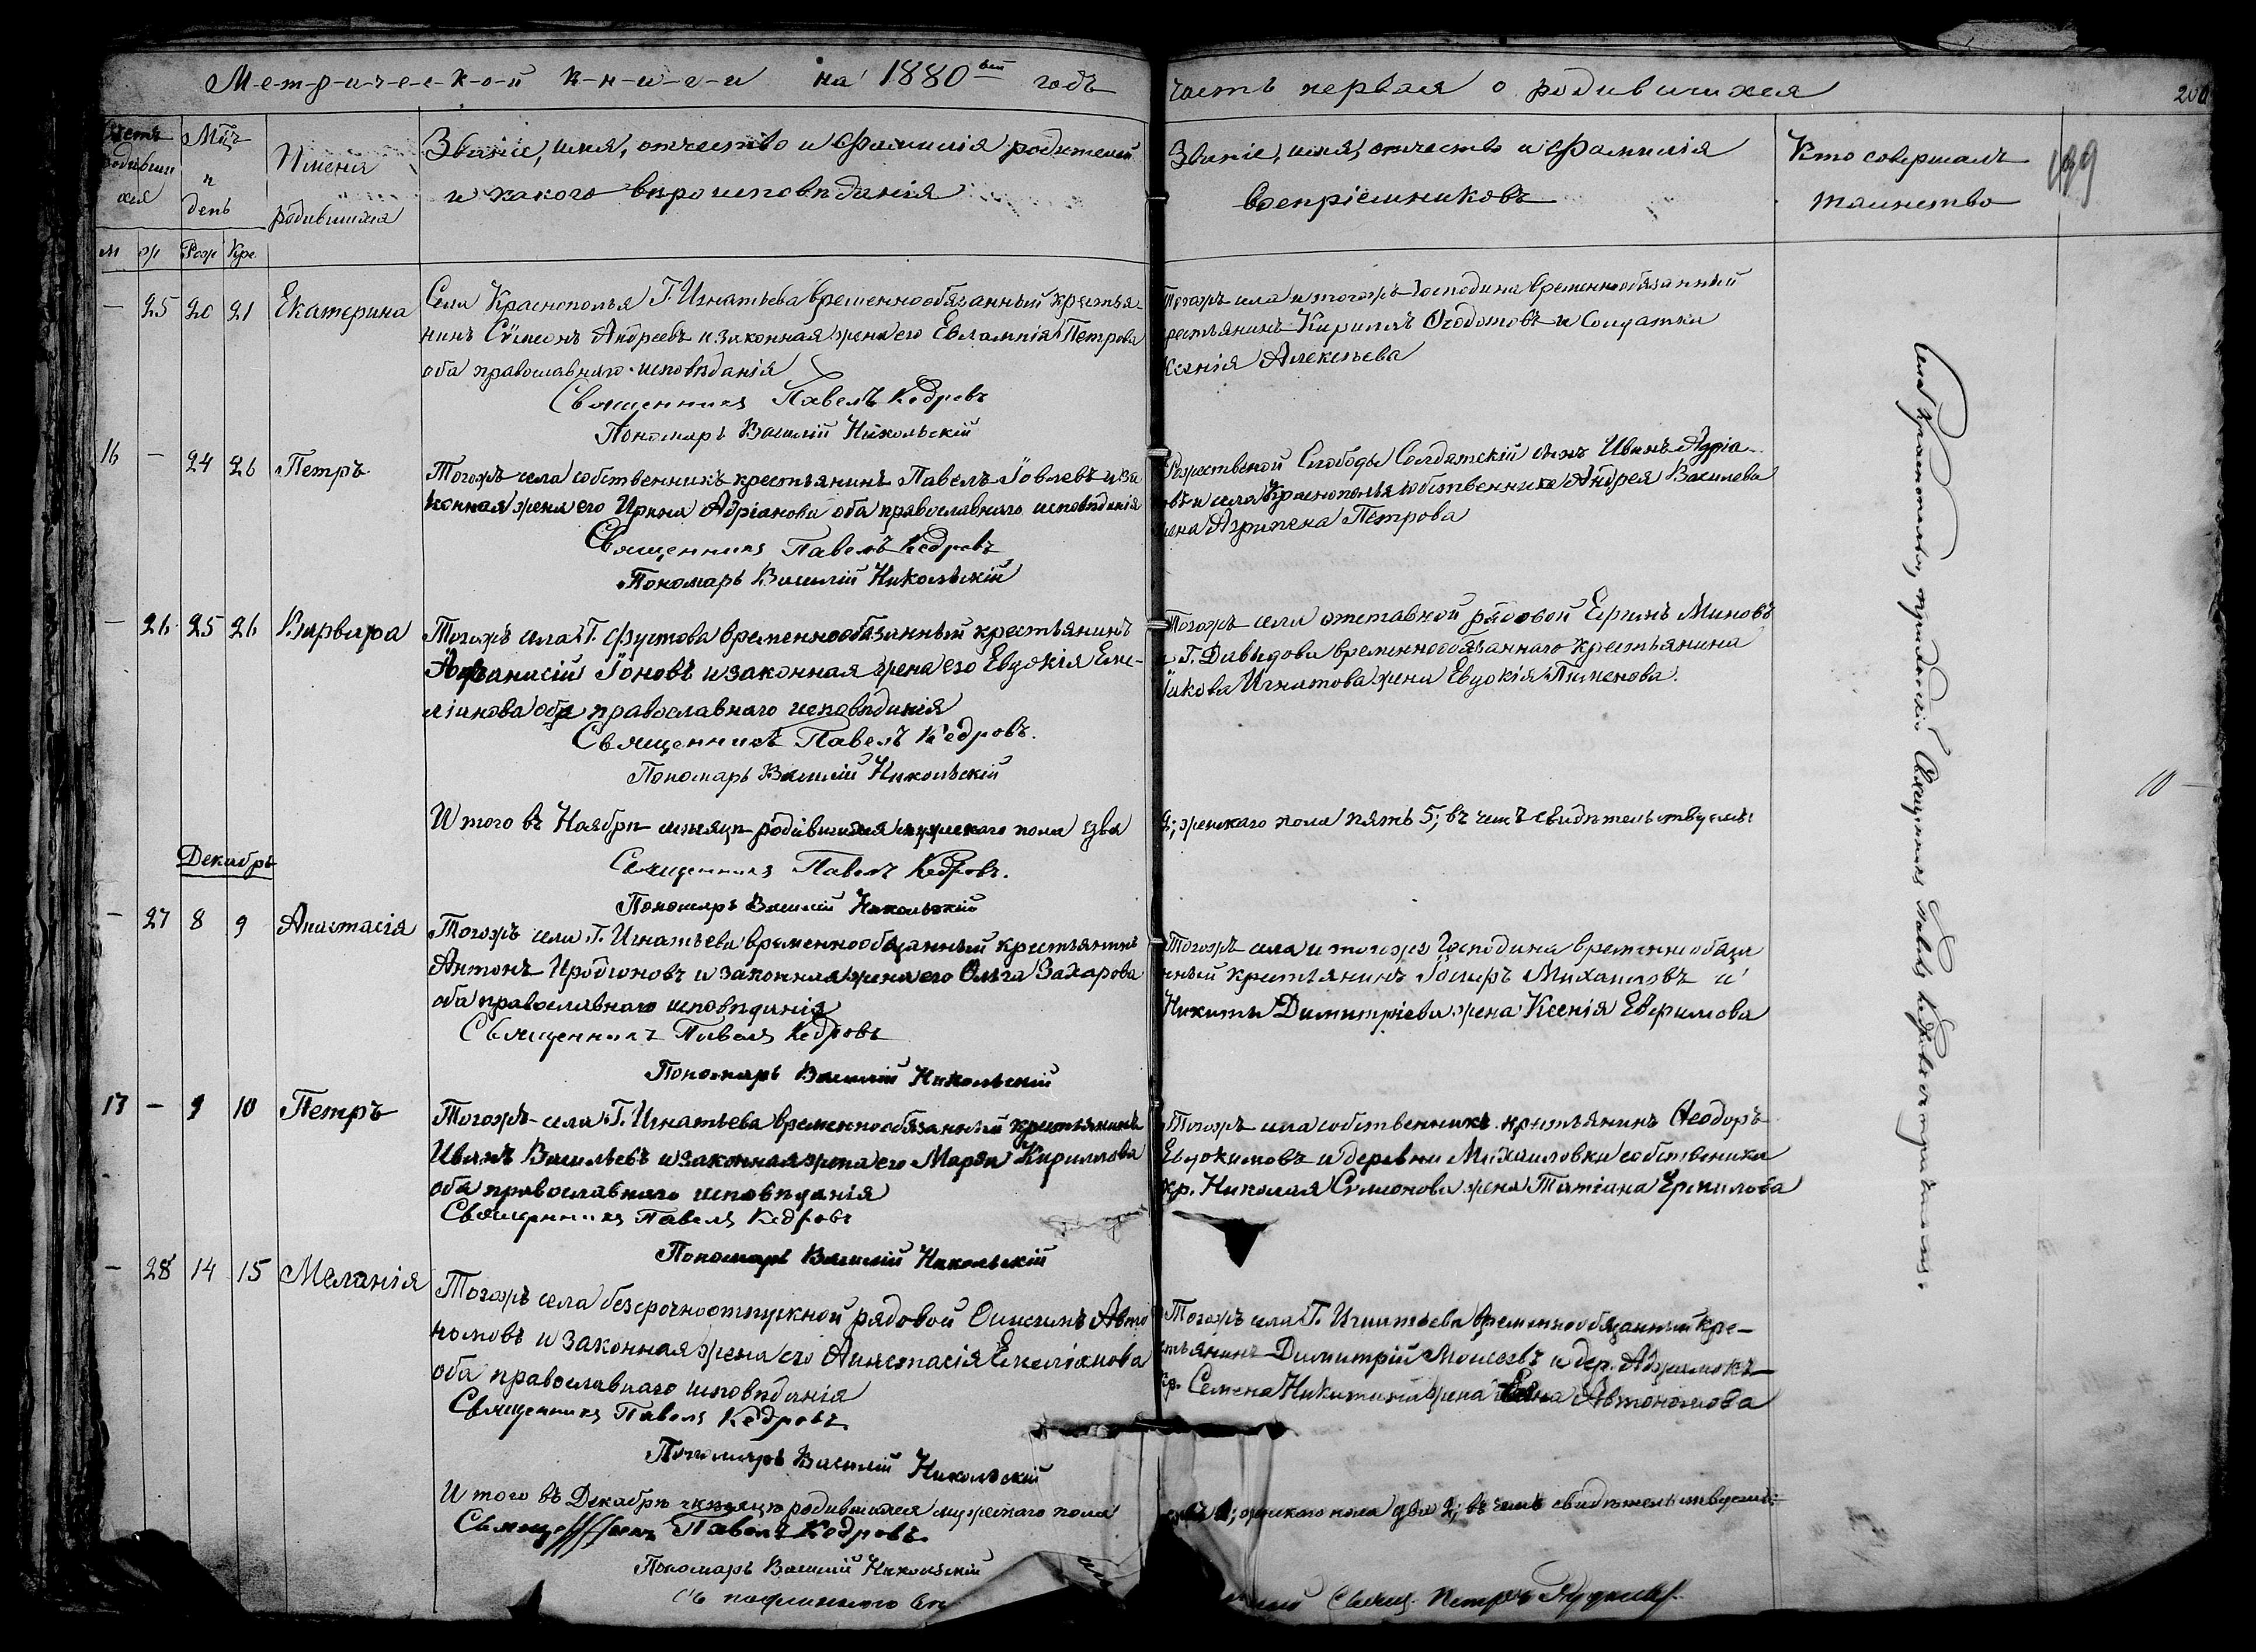 Метрической книги на 1880ый годъ часть первая о родившихся
200
199
Счетъ родившихся
Мцъ и день
Имена родившихся
Званіе, имя, отчество и фамилія родителей
и какого вѣроисповѣданія
Званіе, имя, отчество и фамилія
воспріемниковъ
Кто совершалъ
таинство
м ж Рож Кре
— 25 20 21 Екатерина
Села Краснополья Г. Игнатьева временнообязанный крестья-
нинъ Сѵмеонъ Андреевъ и законная жена его Евлампія Петрова
оба православнаго исповѣданія
Священникъ Павелъ Кедровъ
Пономарь Василій Никольскій
Тогожъ села и тогожъ Господина временнообязанный
крестьянинъ Кириллъ Ѳедотовъ и Солдатка
Ксенія Алексѣева
16 — 24 26 Петръ
Тогожъ села собственникъ крестьянинъ Павелъ Іовлевъ и за
конная жена его Ирина Адріанова оба православнаго исповѣданія
Священникъ Павелъ Кедровъ
Пономарь Василій Никольскій
Рожественой Слободы Солдатскій сынъ Иванъ Адріа-
овъ и села Краснополья собственника Андрея Василева
жена Агрипена Петрова
— 26 25 26 Варвара
Тогожъ села Г. Фустова временнообязанный крестьянинъ
Аѳанасій Іоновъ и законная жена его Евдокія Еме-
ліянова оба православнаго исповѣданія
Священникъ Павелъ Кедровъ.
Пономарь Василій Никольскій
Тогожъ села отставной рядовой Ефимъ Миновъ
и Г. Давыдова временнообязаннаго крестьянина
Іакова Игнатова жена Евдокія Пименова.
Итого въ Ноябрѣ мѣсяцѣ родившихся мужескаго пола два
2; женскаго пола пять 5; въ чемъ свидѣтельствуемъ:
Священникъ Павелъ Кедровъ.
Пономарь Василій Никольскій
Декабрь
— 27 8 9 Анастасія
Тогожъ села Г. Игнатьева временнообязанный крестьянинъ
Антонъ Иродіоновъ и законная жена его Ольга Захарова
оба православнаго исповѣданія
Священникъ Павелъ Кедровъ
Пономарь Василій Никольскій
Тогожъ села и тогожъ Господина временнообяза
нный крестьянинъ Михаиловъ и
Никиты Димитріева жена Ксенія Евфимова
17 — 9 10 Петръ
Тогожъ села Г. Игнатьева временнообязанный крестьянинъ
Иванъ Васильевъ и законная жена его Марѳа Кириллова
оба православнаго исповѣданія
Священникъ Павелъ Кедровъ
Пономарь Василій Никольскій
Тогожъ села собственникъ крестьянинъ Ѳеодоръ
Евдокимовъ и деревни Михаиловки собственика
кр. Николая Симонова жена Татіана Ермилова
— 28 14 15 Меланія
Тогожъ села безсрочноотпускной рядовой Авто
номовъ и законная жена его Анастасія Емеліанова
оба православнаго исповѣданія
Священникъ Павелъ Кедровъ
Пономарь Василій Никольскій
Тогожъ села Г. Игнатьева временнообязанный кре-
стьянинъ Димитрій Моисеевъ и дер.
кр. Семена Никитина жена Автономова
Итого въ Декабрѣ мѣсяцѣ родившихся мужескаго пола
1; женскаго пола два 2; въ чемъ свидѣтельствуемъ:
Священникъ Павелъ Кедровъ.
Пономарь Василій Никольскій
Съ подлиннымъ
Свящ. Петръ
Села Краснополья, приходскій Священникъ Павелъ Кедровъ
10